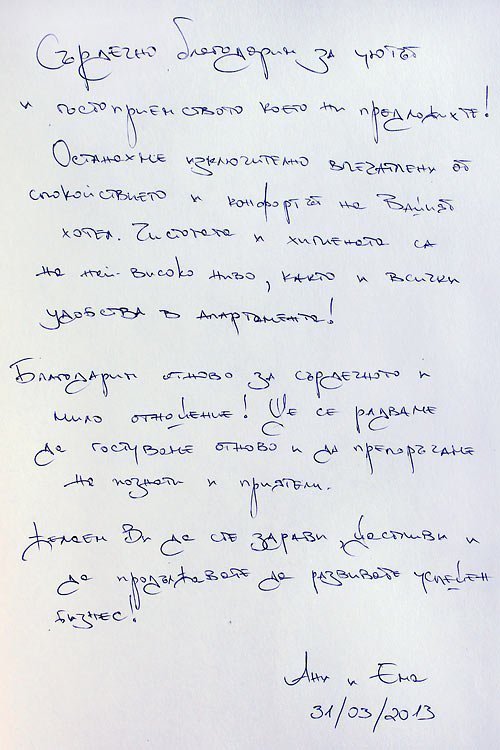 Сърдечно благодарим за уютът
и гостоприемството което ни предложихте!
Останахме изключително впечатлени от
спокойствието и комфортът на Вашият
хотел. Чистотата и хигиената са
на най-високо ниво, както и всички
удобства в апартамента!
Благодарим отново за сърдечното и
мило отношение! Ще се радваме
да гостуваме отново и да препоръчаме
на познати и приятели.
Желаем Ви да сте здрави, щастливи и
да продължавате да развивате успешен
бизнес!
Ани и Ема
31/03/2013